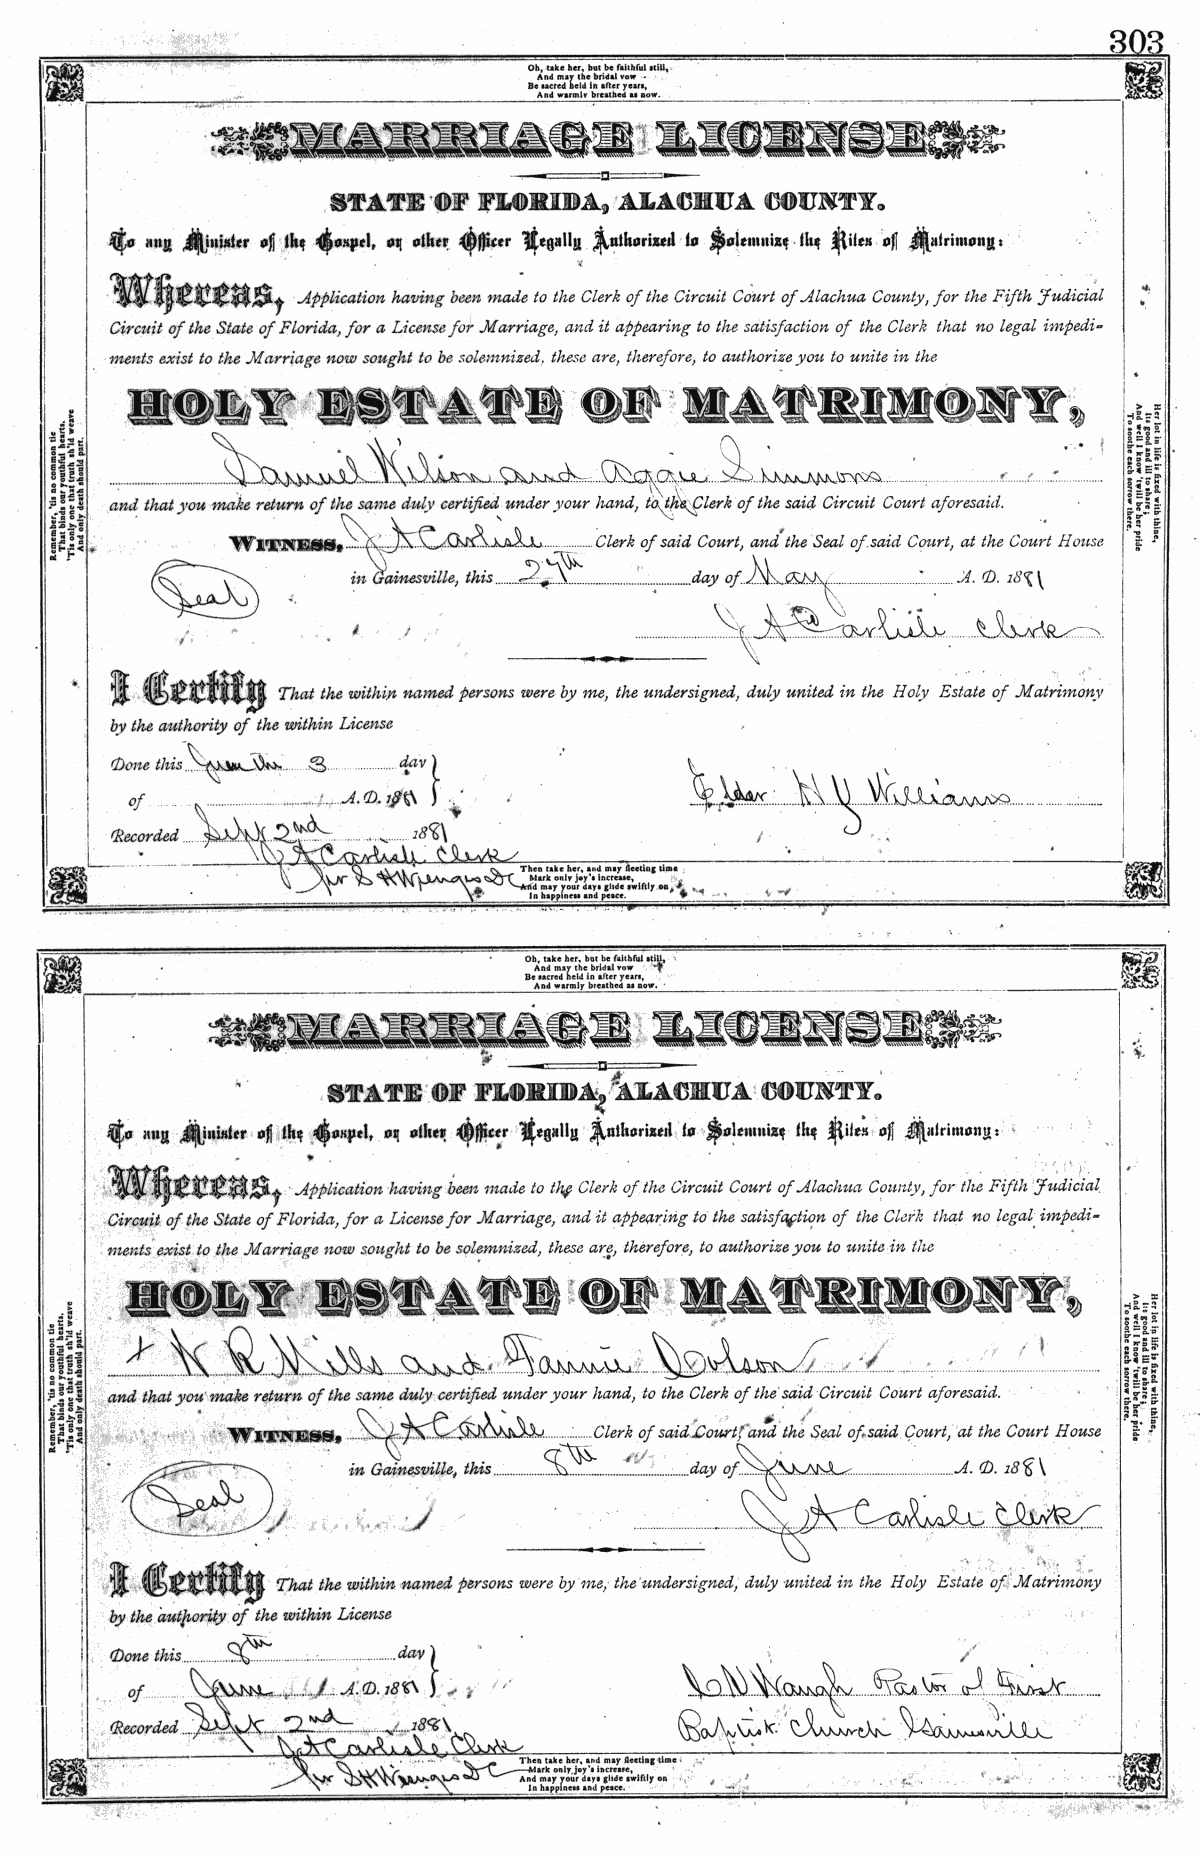 303
Oh, take her, but be faithful still,
And may the bridal vow
Be sacred held in after years,
And warmly breathed as now.
MARRIAGE LICENSE
STATE OF FLORIDA, ALACHUA COUNTY.
To any Minister of the Gospel, or other Officer Legally Authorized to Solemnize the Rites of Matrimony:
Whereas, Application having been made to the Clerk of the Circuit Court of Alachua County, for the Fifth Judicial
Circuit of the State of Florida, for a License for Marriage, and it appearing to the satisfaction of the Clerk that no legal impedi-
ments exist to the Marriage now sought to be solemnized, these are, therefore, to authorize you to unite in the
HOLY ESTATE OF MATRIMONY,
Samuel Wilson and Aggie Simmons
and that you make return of the same duly certified under your hand, to the Clerk of the said Circuit Court aforesaid.
WITNESS, J A Carlisle Clerk of said Court, and the Seal of said Court, at the Court House
in Gainesville, this 27th day of May A. D. 1881
Seal
J A Carlisle Clerk
I Certify That the within named persons were by me, the undersigned, duly united in the Holy Estate of Matrimony
by the authority of the within License
Done this June the 3 day
of A. D. 1881
Elder H Y Williams
Recorded Sept 2nd 1881
J A Carlisle Clerk
per S H Wienges DC
Then take her, and may fleeting time
Mark only joy's increase,
And may your days glide swiftly on
In happiness and peace.
Remember, 'tis no common tie
That binds our youthful hearts,
'Tis only one that truth sh'ld weave
And only death should part.
Her lot in life is fixed with thine,
Its good and ill to share;
And well I know 'twill be her pride
To soothe each sorrow there.
Oh, take her, but be faithful still,
And may the bridal vow
Be sacred held in after years,
And warmly breathed as now.
MARRIAGE LICENSE
STATE OF FLORIDA, ALACHUA COUNTY.
To any Minister of the Gospel, or other Officer Legally Authorized to Solemnize the Rites of Matrimony:
Whereas, Application having been made to the Clerk of the Circuit Court of Alachua County, for the Fifth Judicial
Circuit of the State of Florida, for a License for Marriage, and it appearing to the satisfaction of the Clerk that no legal impedi-
ments exist to the Marriage now sought to be solemnized, these are, therefore, to authorize you to unite in the
HOLY ESTATE OF MATRIMONY,
+ W R Mills and Fannie Colson
and that you make return of the same duly certified under your hand, to the Clerk of the said Circuit Court aforesaid.
WITNESS, J A Carlisle Clerk of said Court, and the Seal of said Court, at the Court House
in Gainesville, this 8th day of June A. D. 1881
Seal
J A Carlisle Clerk
I Certify That the within named persons were by me, the undersigned, duly united in the Holy Estate of Matrimony
by the authority of the within License
Done this 8th day
of June A. D. 1881
C V Waugh Pastor of First
Baptist Church Gainesville
Recorded Sept 2nd 1881
J A Carlisle Clerk
per S H Wienges DC
Then take her, and may fleeting time
Mark only joy's increase,
And may your days glide swiftly on
In happiness and peace.
Remember, 'tis no common tie
That binds our youthful hearts,
'Tis only one that truth sh'ld weave
And only death should part.
Her lot in life is fixed with thine,
Its good and ill to share;
And well I know 'twill be her pride
To soothe each sorrow there.